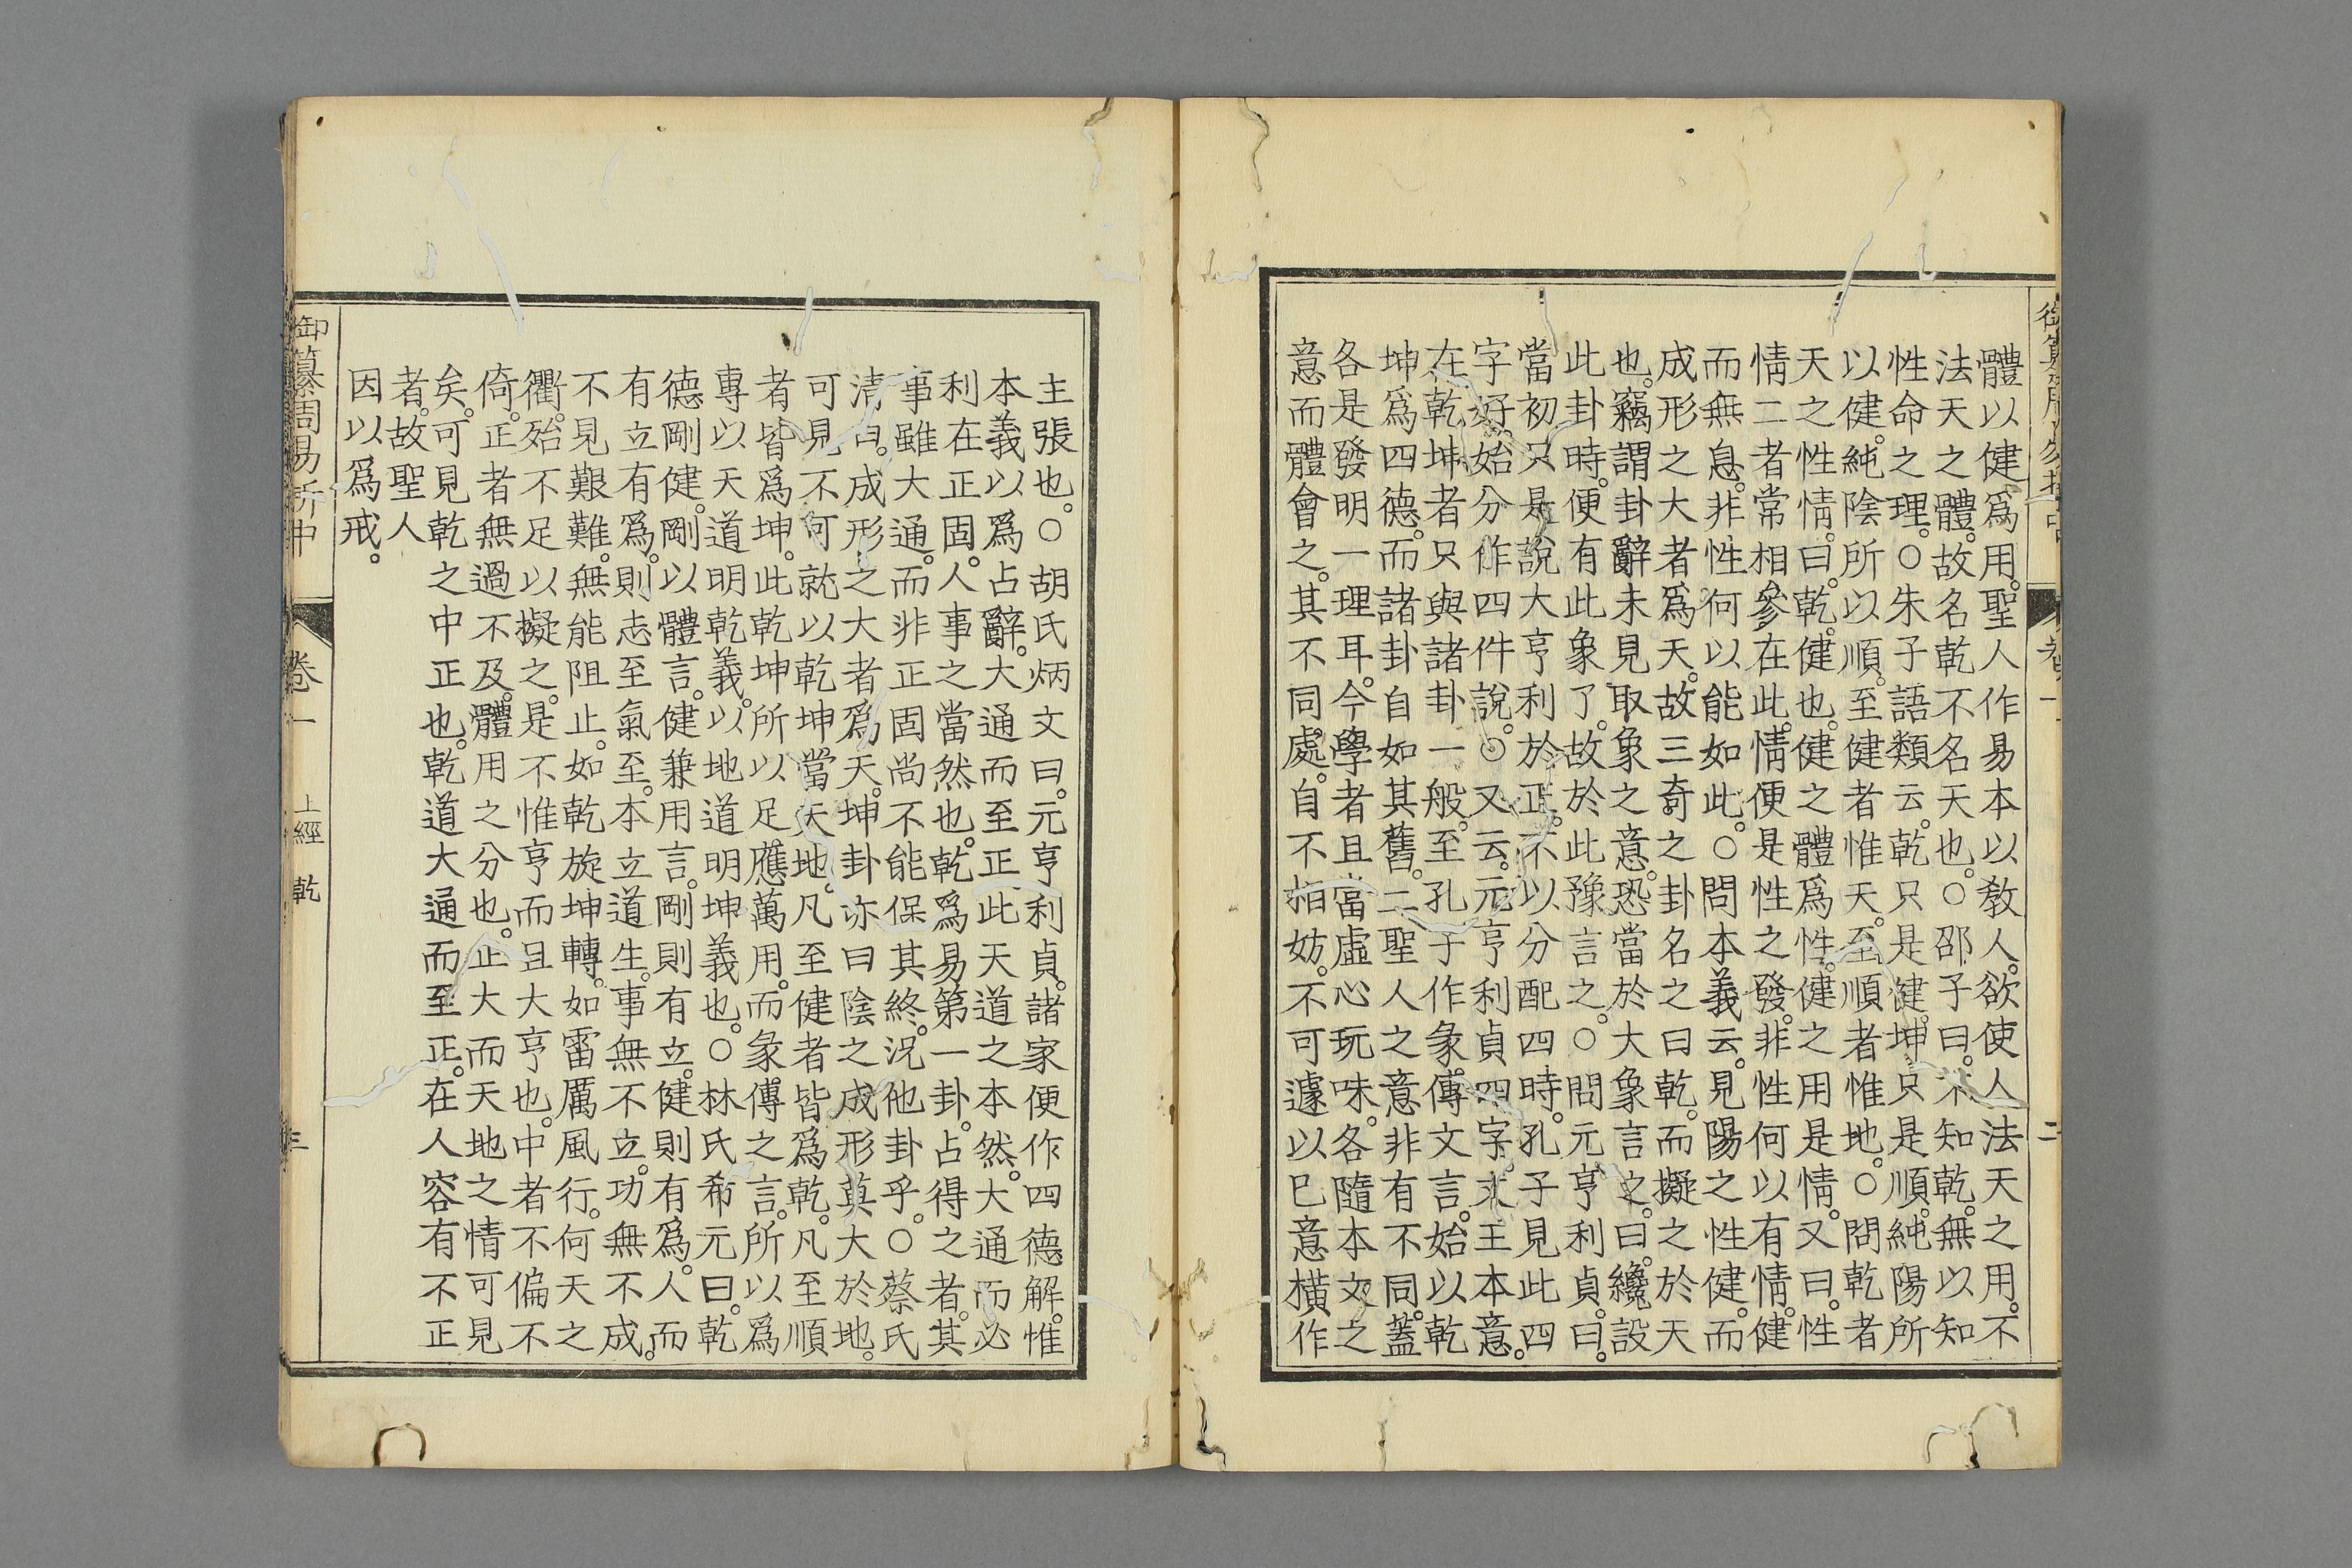 體以健爲用。聖人作易本以敎人。欲使人法天之用。不
法天之體。故名乾不名天也。○邵子曰。不知乾。無以知
性命之理。○朱子語類云。乾只是健。坤只是順。純陽所
以健。純陰所以順。至健者惟天。至順者惟地。○問乾者
天之性情。曰。乾。健也。健之體爲性。健之用是情。又曰。性
情二者常相參在此。情便是性之發。非性何以有情。健
而無息。非性何以能如此。○問本義云。見陽之性健。而
成形之大者爲天。故三奇之卦名之曰乾。而擬之於天
也。竊謂卦辭未見取象之意。恐當於大象言之。曰。纔設
此卦時。便有此象了。故於此豫言之。○問元亨利貞。曰。
當初只是說大亨利於正。不以分配四時。孔子見此四
字好。始分作四件說。○又云。元亨利貞四字。文王本意。
在乾坤者只與諸卦一般。至孔子作彖傳文言。始以乾
坤爲四德。而諸卦自如其舊。二聖人之意非有不同。蓋
各是發明一理耳。今學者且當虛心玩味。各隨本文之
意而體會之。其不同處。自不相妨。不可遽以巳意橫作
卷一
二
主張也。○胡氏炳文曰。元亨利貞。諸家便作四德解。惟
本義以爲占辭。大通而至正此天道之本然。大通而必
利在正固。人事之當然也。乾爲易第一卦。占得之者。其
事雖大通。而非正固尚不能保其終。況他卦乎。○蔡氏
淸曰。成形之大者爲天。坤卦亦曰陰之成形莫大於地。
可見不可就以乾坤當天地。凡至健者皆爲乾。凡至順
者皆爲坤。此乾坤所以足應萬用。而彖傳之言。所以爲
專以天道明乾義。以地道明坤義也。○林氏希元曰。乾
德剛健。剛以體言。健兼用言。剛則有立。健則有爲。人而
有立有爲。則志至氣至。本立道生。事無不立。功無不成。
不見艱難。無能阻止。如乾旋坤轉。如雷厲風行。何天之
衢。殆不足以擬之。是不惟亨而且大亨也。中者不偏不
倚。正者無過不及。體用之分也。正大而天地之情可見
矣。可見乾之中正也。乾道大通而至正。在人容有不正
者。故聖人
因以爲戒。
御纂周易折中
卷一
上經 乾
三